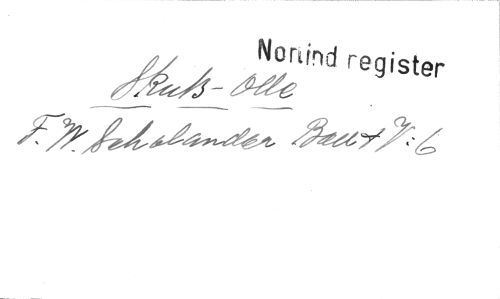 Norlind register
Skuts-Olle
F. W. Scholander Bd V:6